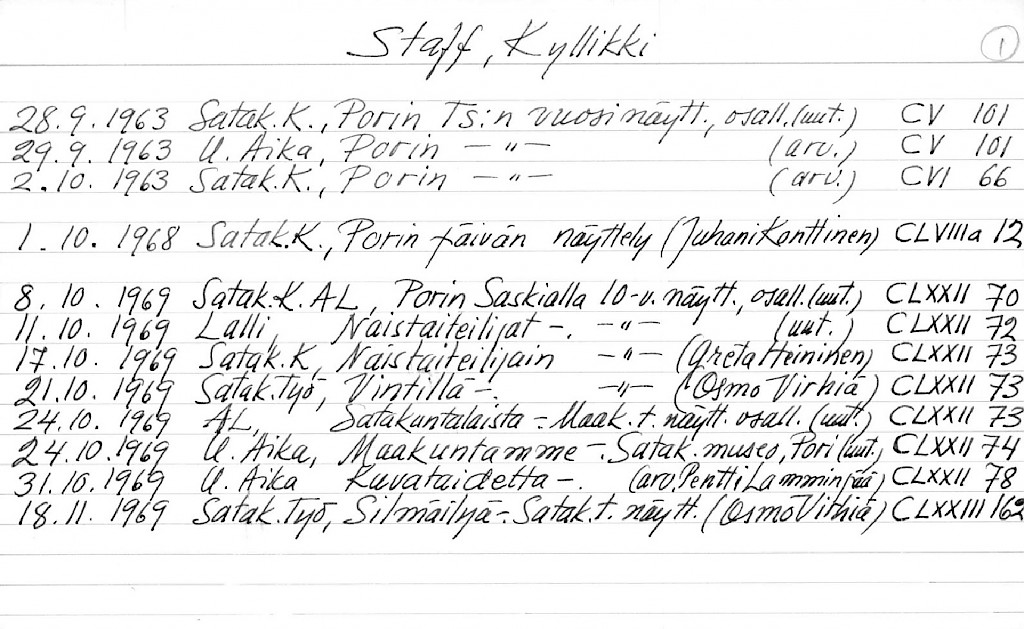 Staff, Kyllikki 1
28.9.1963 Satak.K., Porin Ts:n vuosinäytt., osall.(uut.) CV 101
29.9.1963 U. Aika, Porin —"— (arv.) CV 101
2.10.1963 Satak.K., Porin —"— (arv.) CVI 66
1.10.1968 Satak.K., Porin päivän näyttely (Juhani Konttinen) CLVIIIa 12
8.10.1969 Satak.K. AL, Porin Saskialla 10-v. näytt., osall.(uut.) CLXXII 70
11.10.1969 Lalli, Naistaiteilijat -. —"— (uut.) CLXXII 72
17.10.1969 Satak.K, Naistaiteilijain —"— (Greta Heininen) CLXXII 73
21.10.1969 Satak.Työ, Vintillä -. —"— (Osmo Virhiä) CLXXII 73
24.10.1969 AL, Satakuntalaista - Maak.t. näytt. osall. (uut.) CLXXII 73
24.10.1969 U. Aika, Maakuntamme -. Satak. museo, Pori (uut.) CLXXII 74
31.10.1969 U. Aika Kuvataidetta -. (arv. Pentti Lamminpää) CLXXII 78
18.11.1969 Satak.Työ, Silmäilyjä -. Satak.t. näytt. (Osmo Virhiä) CLXXIII 162